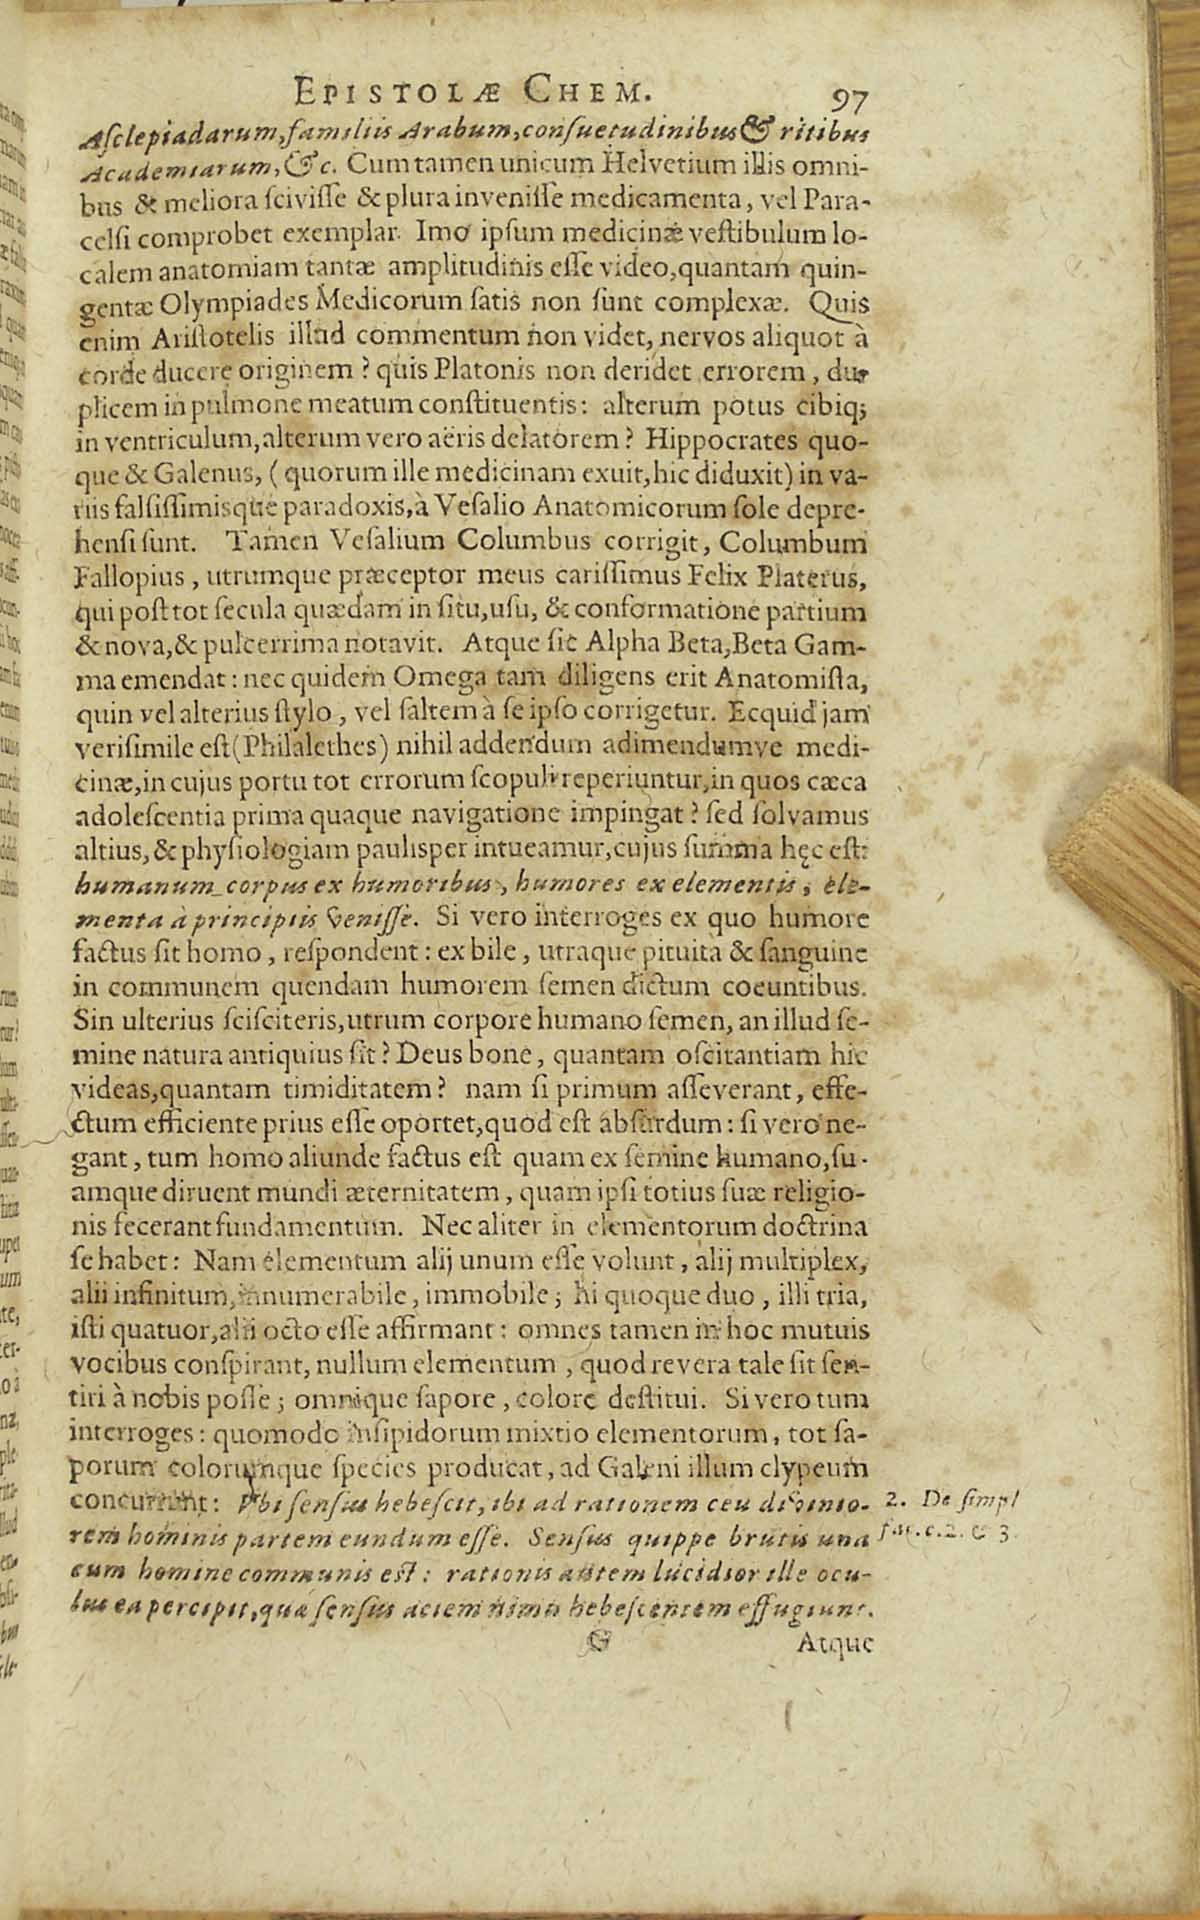 EPISTOLÆ CHEM. 97
Aſclepiadarum, familiis Arabum, conſuetudinibus & ritibus
Academiarum, &c. Cum tamen unicum Helvetium illis omni-
bus & meliora ſciviſſe & plura inveniſſe medicamenta, vel Para-
celſi comprobet exemplar. Imo ipſum medicinæ veſtibulum lo-
calem anatomiam tantæ amplitudinis eſſe video, quantam quin-
gentæ Olympiades Medicorum ſatis non ſunt complexæ. Quis
enim Ariſtotelis illud commentum non videt, nervos aliquot à
corde ducere originem? quis Platonis non deridet errorem, du-
plicem in pulmone meatum conſtituentis: alterum potus cibiq;
in ventriculum, alterum vero aëris delatorem? Hippocrates quo-
que & Galenus, (quorum ille medicinam exuit, hic diduxit) in va-
riis falſiſſimisque paradoxis, à Veſalio Anatomicorum ſole depre-
henſi ſunt. Tamen Veſalium Columbus corrigit, Columbum
Fallopius, utrumque præceptor meus cariſſimus Felix Platerus,
qui poſt tot ſecula quædam in ſitu, uſu, & conformatione partium
& nova, & pulcerrima notavit. Atque ſic Alpha Beta, Beta Gam-
ma emendat: nec quidem Omega tam diligens erit Anatomiſta,
quin vel alterius ſtylo, vel ſaltem à ſe ipſo corrigetur. Ecquid jam
veriſimile eſt (Philalethes) nihil addendum adimendumve medi-
cinæ, in cujus portu tot errorum ſcopuli reperiuntur, in quos cæca
adoleſcentia prima quaque navigatione impingat? ſed ſolvamus
altius, & phyſiologiam pauliſper intueamur, cujus ſumma hęc eſt:
humanum corpus ex humoribus, humores ex elementis, ele-
menta à principiis veniſſe. Si vero interroges ex quo humore
factus ſit homo, reſpondent: ex bile, utraque pituita & ſanguine
in communem quendam humorem ſemen dictum coeuntibus.
Sin ulterius ſciſciteris, utrum corpore humano ſemen, an illud ſe-
mine natura antiquius ſit? Deus bone, quantam oſcitantiam hic
videas, quantam timiditatem? nam ſi primum aſſeverant, effe-
ctum efficiente prius eſſe oportet, quod eſt abſurdum: ſi vero ne-
gant, tum homo aliunde factus eſt quam ex ſemine humano, ſu-
amque diruent mundi æternitatem, quam ipſi totius ſuæ religio-
nis fecerant fundamentum. Nec aliter in elementorum doctrina
ſe habet: Nam elementum alij unum eſſe volunt, alij multiplex,
alii infinitum, innumerabile, immobile; hi quoque duo, illi tria,
iſti quatuor, alii octo eſſe affirmant: omnes tamen in hoc mutuis
vocibus conſpirant, nullum elementum, quod revera tale ſit ſen-
tiri à nobis poſſe; omnique ſapore, colore deſtitui. Si vero tum
interroges: quomodo inſipidorum mixtio elementorum, tot ſa-
porum colorumque ſpecies producat, ad Galeni illum clypeum
concurrunt: Vbi ſenſus hebeſcit, ibi ad rationem ceu divinio-
rem hominis partem eundum eſſe. Senſus quippe brutis una
cum homine communis eſt: rationis autem lucidior ille ocu-
lus ea percipit, quæ ſenſus aciem nimis hebeſcentem effugiunt.
2. De ſimpl
fac. c. 2. & 3.
G Atque